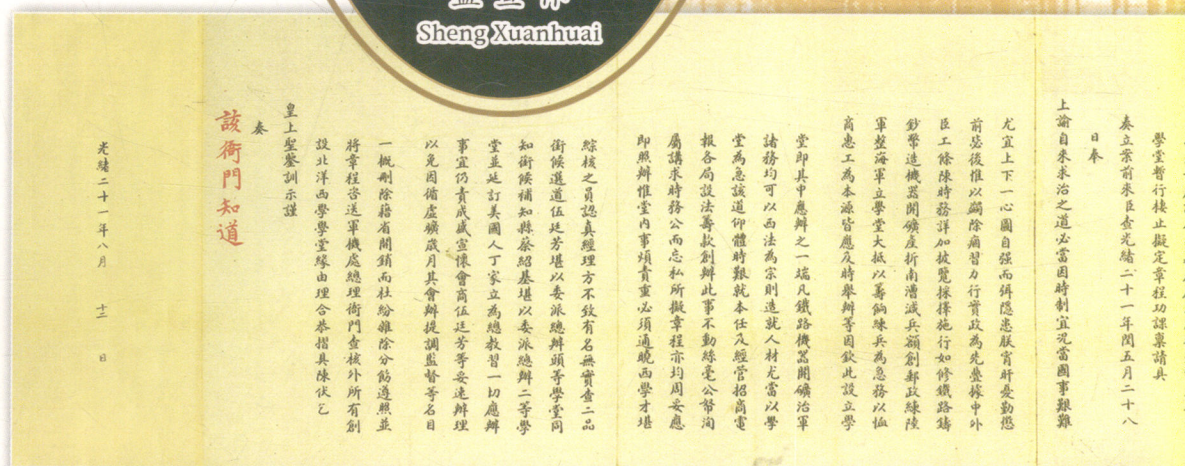 Sheng Xuanhuai
學堂暫行棲止擬定章程功課稟請具
奏立案前來臣查光緒二十一年閏五月二十八
日奉
上諭自來求治之道必當因時制宜況當國事艱難
尤宜上下一心圖自强而弭隱患朕宵旰憂勤懲
前毖後惟以蠲除痼習力行實政為先疊據中外
臣工條陳時務詳加披覽採擇施行如修鐵路鑄
鈔幣造機器開礦產折南漕減兵額創郵政練陸
軍整海軍立學堂大抵以籌餉練兵為急務以恤
商惠工為本源皆應及時舉辦等因欽此設立學
堂即其中應辦之一端凡鐵路機器開礦治軍
諸務均可以西法為宗則造就人材尤當以學
堂為急該道仰體時艱就本任及經管招商電
報各局設法籌款創辦此事不動絲毫公帑洵
屬講求時務公而忘私所擬章程亦均周妥應
即照辦惟堂內事煩責重必須通曉西學才堪
綜核之員認真經理方不致有名無實查二品
銜候選道伍廷芳堪以委派總辦頭等學堂同
知銜候補知縣蔡紹基堪以委派總辦二等學
堂並延訂美國人丁家立為總教習一切應辦
事宜仍責成盛宣懷會商伍廷芳等妥速辦理
以免因循虛曠歲月其會辦提調監督等名目
一概刪除藉省開銷而杜紛雜除分飭遵照並
將章程咨送軍機處總理衙門查核外所有創
設北洋西學學堂緣由理合恭摺具陳伏乞
皇上聖鑒訓示謹
奏
該衙門知道
光緒二十一年八月 十二 日